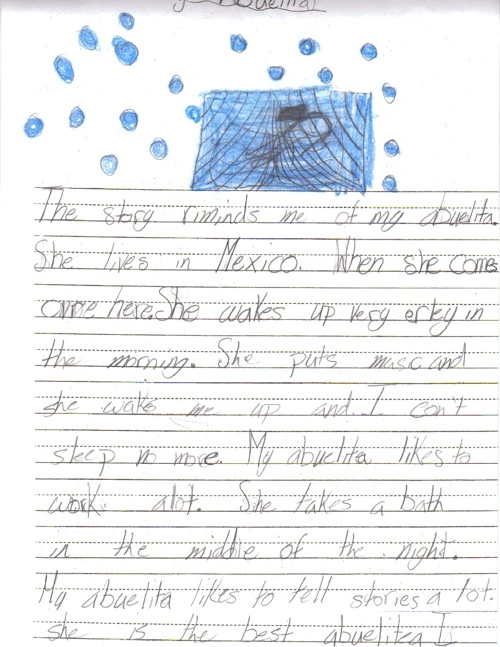 Abuelita
The story riminds me of my abuelita.
She lives in Mexico. When she comes
ovre here. She wakes up very erky in
the morning. She puts music and
she wakes me up and I con't
sleep no more. My abuelita likes to
work alot. She takes a bath
in the middle of the night.
My abuelita likes to tell stories a lot.
she is the best abuelitea I